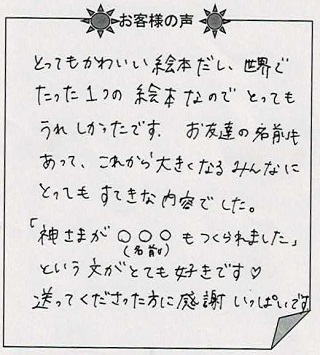 お客様の声
とってもかわいい絵本だし、世界で
たった1つの絵本なのでとっても
うれしかったです。お友達の名前も
あって、これから大きくなるみんなに
とってもすてきな内容でした。
「神さまが○○○もつくられました」
(名前)
という文がとても好きです♡
送ってくださった方に感謝いっぱいです